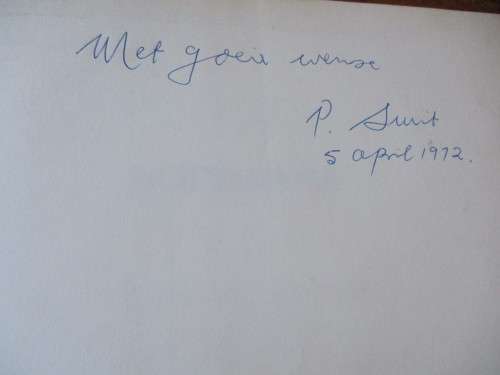 Met goeie wense
P. Smit
5 april 1972.